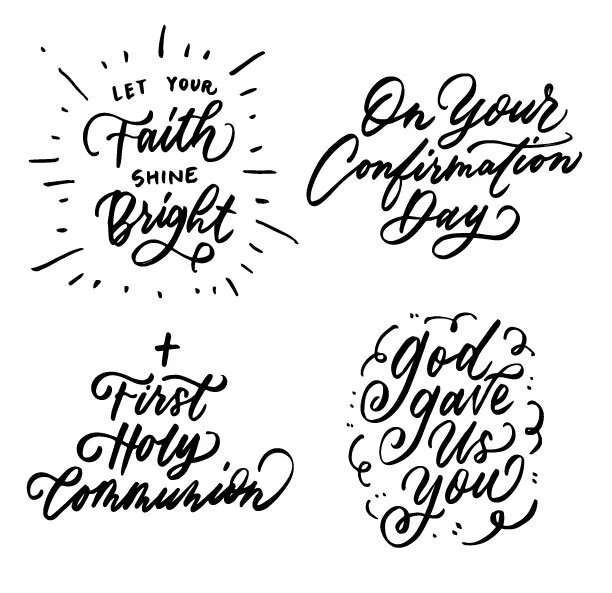 LET YOUR
Faith
SHINE
Bright
On Your
Confirmation
Day
First
Holy
Communion
god
gave
us
you